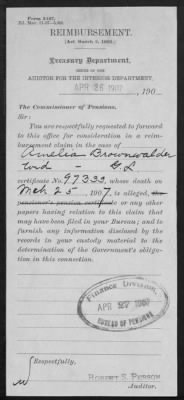 Form 3-167.
REIMBURSEMENT.
(Act, March 2, 1895.)
Treasury Department,
OFFICE OF THE
AUDITOR FOR THE INTERIOR DEPARTMENT,
APR 26 1907, 190
The Commissioner of Pensions.
Sir:
You are respectfully requested to forward to
this office for consideration in a reim-
bursement claim in the case of
Amelia Brownwalder
Wid - G.L
certificate No. 97333, whose death on
Mch 25, 1907, is alleged, the
pensioner's pension certificate or any other
papers having relation to this claim that
may be on file in your Bureau; and to
furnish any information disclosed by
the records in your custody material to
the determination of the Government's obligation
in this connection.
FINANCE DIVISION,
APR 27 1907
BUREAU OF PENSIONS
Respectfully,
ROBERT S. PERSON
Auditor.